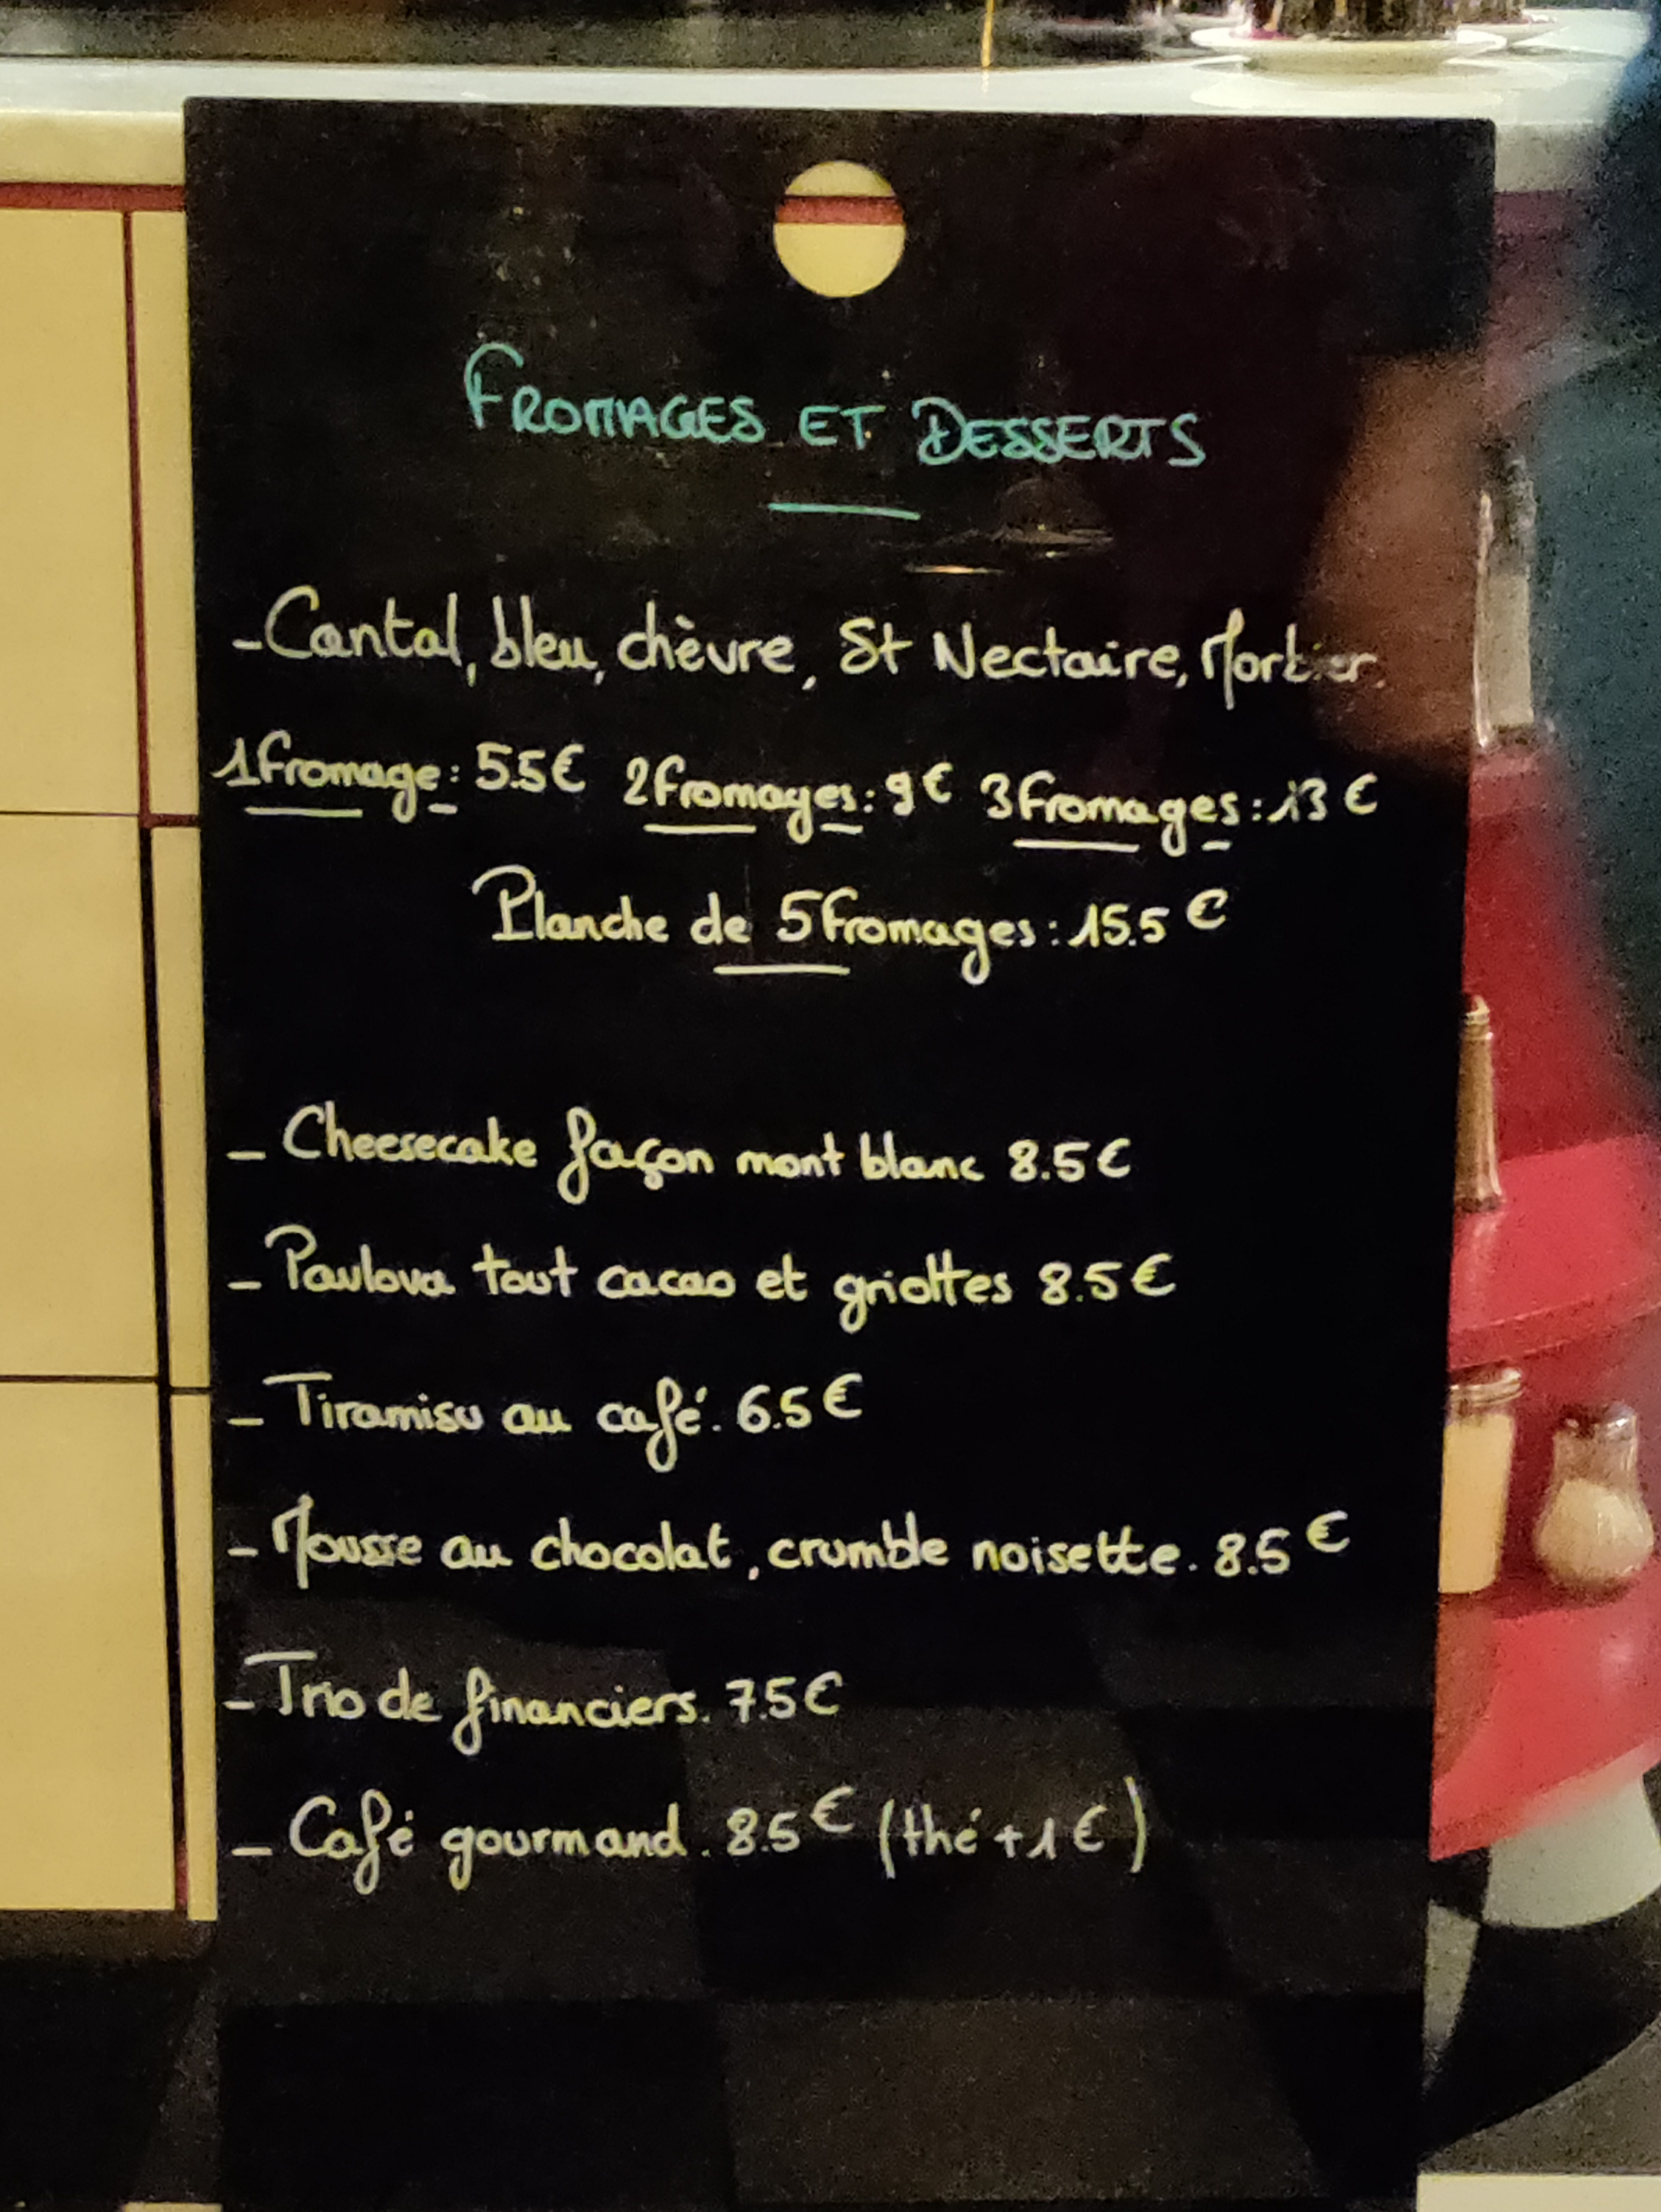 FROMAGES ET DESSERTS
- Cantal, bleu, chèvre, St Nectaire, Morbier.
1 fromage : 5.5€ 2 fromages : 9€ 3 fromages : 13€
Planche de 5 fromages : 15.5€
- Cheesecake façon mont blanc 8.5€
- Pavlova tout cacao et griottes 8.5€
- Tiramisu au café. 6.5€
- Mousse au chocolat, crumble noisette. 8.5€
- Trio de financiers. 7.5€
- Café gourmand. 8.5€ (thé +1€)